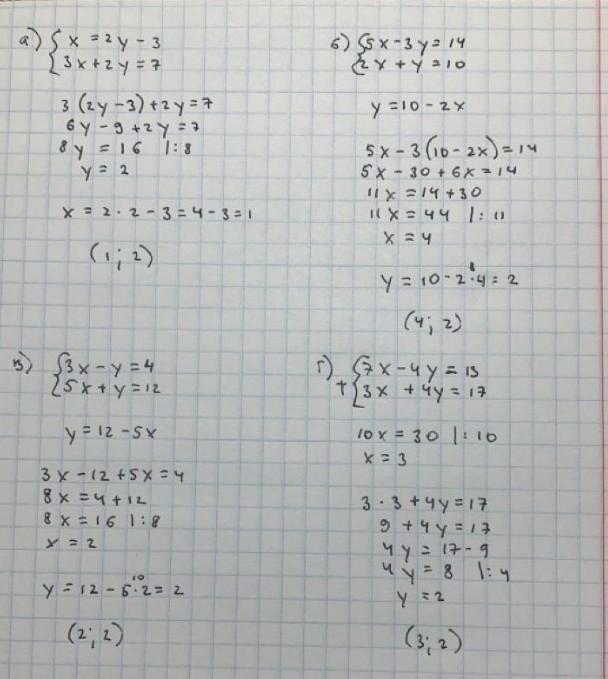 а) { x = 2y - 3
3x + 2y = 7
3 (2y - 3) + 2y = 7
6y - 9 + 2y = 7
8y = 16 |:8
y = 2
x = 2 · 2 - 3 = 4 - 3 = 1
(1; 2)
б) { 5x - 3y = 14
2x + y = 10
y = 10 - 2x
5x - 3(10 - 2x) = 14
5x - 30 + 6x = 14
11x = 14 + 30
11x = 44 |: 11
x = 4
8
y = 10 - 2·4 = 2
(4; 2)
в) { 3x - y = 4
5x + y = 12
y = 12 - 5x
3x - 12 + 5x = 4
8x = 4 + 12
8x = 16 |:8
x = 2
10
y = 12 - 5·2 = 2
(2; 2)
г) { 7x - 4y = 13
+ 3x + 4y = 17
10x = 30 |: 10
x = 3
3 · 3 + 4y = 17
9 + 4y = 17
4y = 17 - 9
4y = 8 |: 4
y = 2
(3; 2)